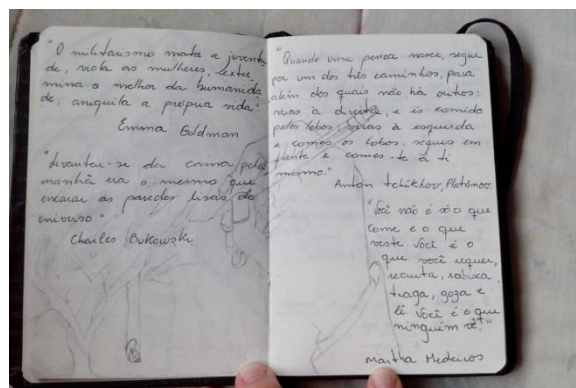 "O militarismo mata a juventu
de, viola as mulheres, exter
mina o melhor da humanida
de, aniquila a própria vida"
Emma Goldman
"Levantar-se da cama pela
manhã era o mesmo que
encarar as paredes lisas do
universo."
Charles Bukowski
"Quando uma pessoa nasce, segue
por um dos três caminhos, para
além dos quais não há outros:
viras à direita, e és comido
pelos lobos, viras à esquerda
e comes os lobos, segues em
frente e comes-te a ti
mesmo."
Anton Tchékhov, Platónov.
"Você não é só o que
come e o que
veste você é o
que você requer,
recruta, rabisca,
traga, goza e
lê você é o que
ninguém vê."
Martha Medeiros